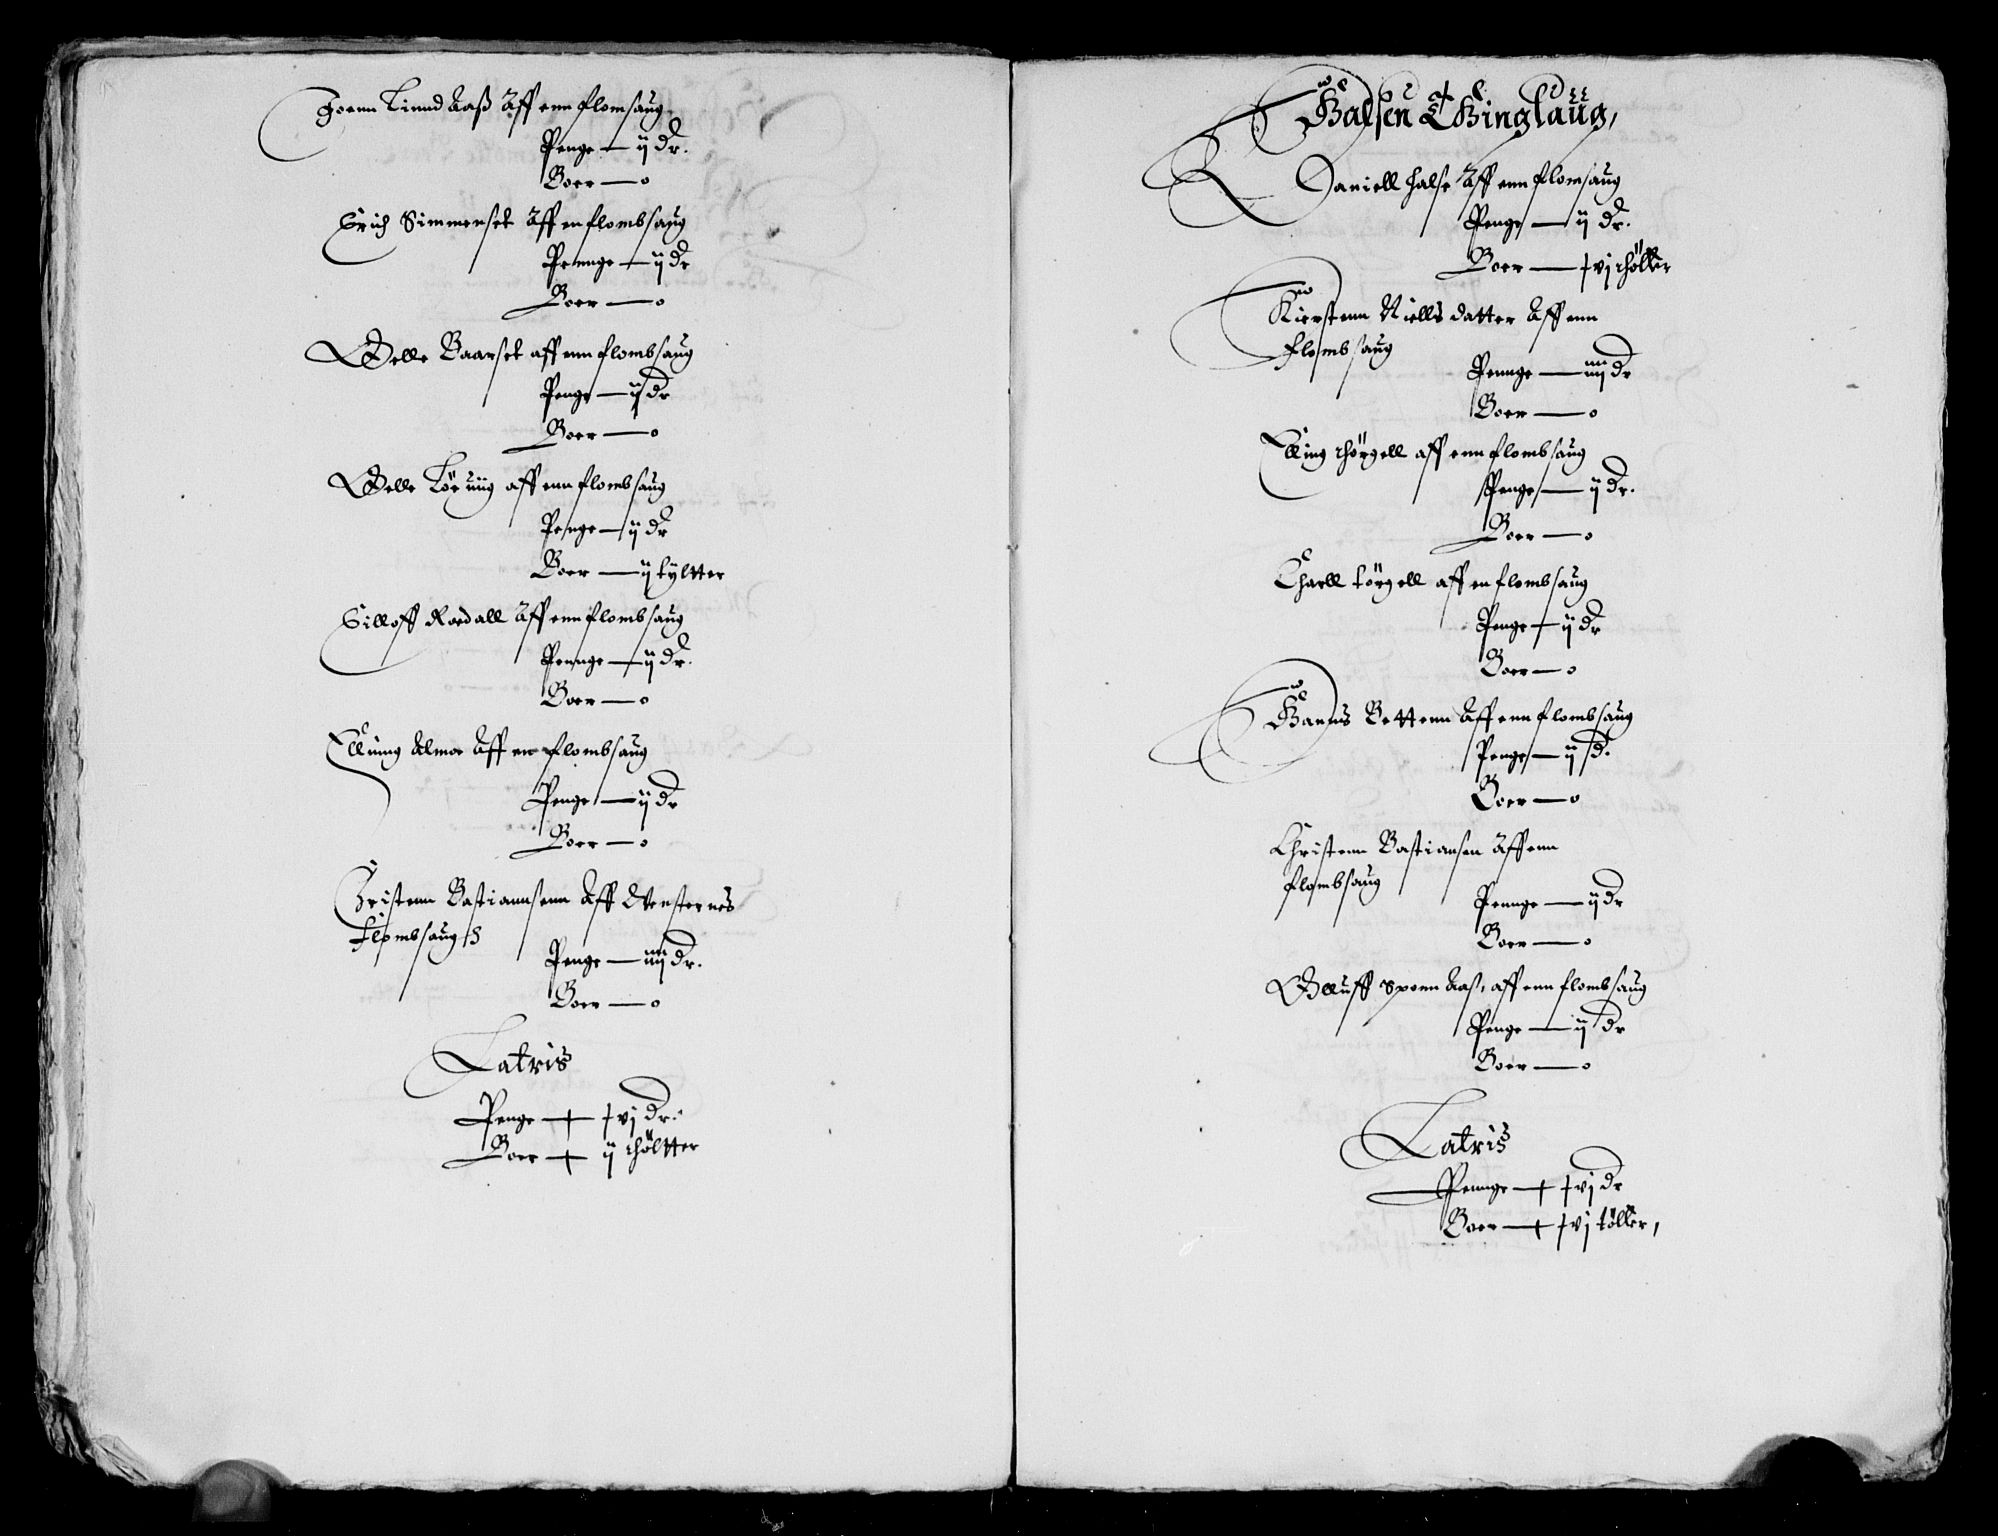 Joenn Linnd Aaß Aff enn flomsaug
Penge — ij dr.
Boer — 0
Erich Simmenset Aff en flombsaug
Pennge — ij dr
Boer — 0
Oelle Baarset aff enn flombsaug
Penge — ij dr
Boer — 0
Oelle aff enn flombsaug
Penge — ij dr
Boer — ij tyltter
Silloff Roedall Aff enn flombsaug
Pennge — ij dr.
Boer — 0
Elling Almoe Aff en flombsaug
Penge — ij dr
Boer — 0
Christenn Bastiannsenn Aff
flombsaug
Penge — iiij dr.
Boer — 0
Latris
Penge — xvj dr.
Boer — ij thöltter
Halsen Thinglaug,
Daniell Halse Aff enn flomsaug
Penge — ij dr.
Boer — xvj thöller
Kierstenn Niells datter Aff enn
flombsaug
Pennge — iiij dr
Boer — 0
Elling thörgell aff enn flombsaug
Penge — ij dr.
Boer — 0
Tharell törgell aff en flombsaug
Penge — ij dr
Boer — 0
Hanns Bettenn Aff enn flombsaug
Penge — ij d.
Boer — 0
Christenn Bastiansen Aff enn
flombsaug
Pennge — ij dr
Boer — 0
Olluff Aas, aff enn flombsaug
Penge — ij dr
Boer — 0
Latris
Pennge — xvj dr
Boer — xvj töller,